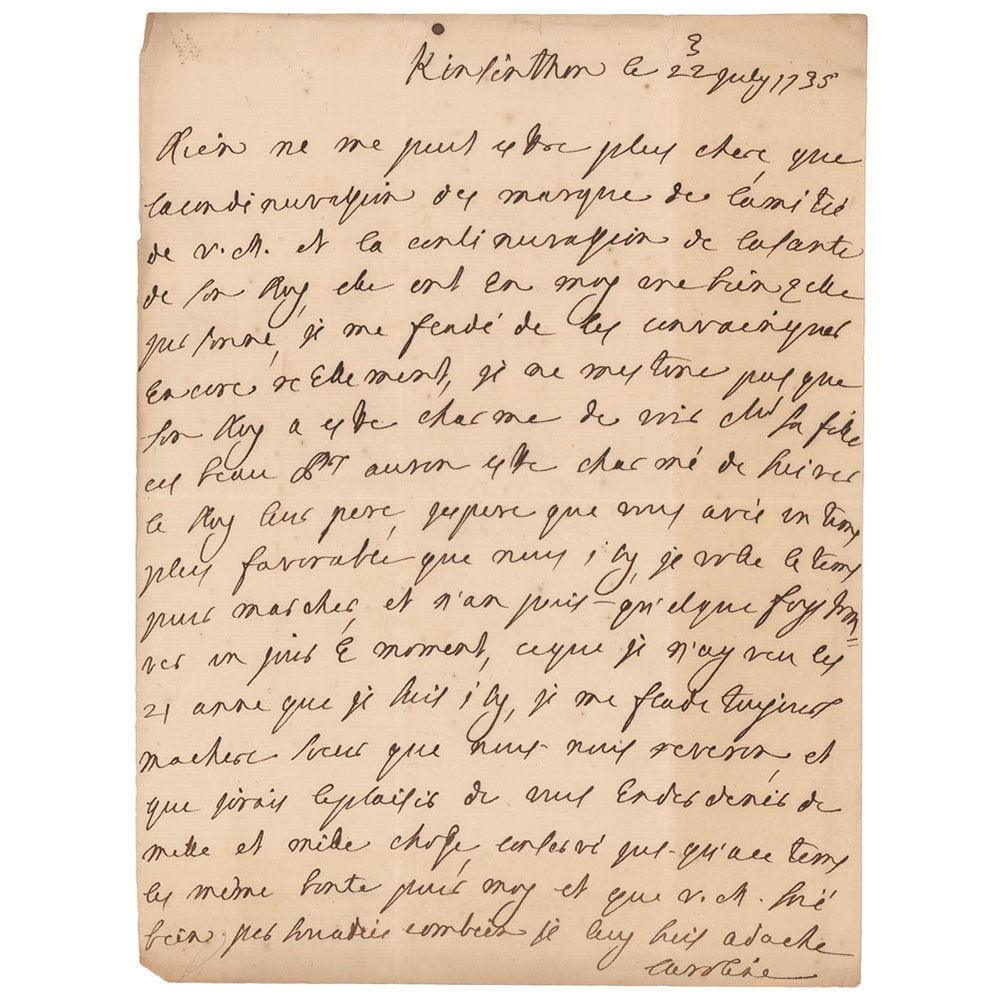 Kinsinthon le 3/22 july 1735
Rien ne me peut estre plus chere que
lacondinuvassion des marque de lamitié
de v. M. et la continuvassion de lasante
de son Roy, elle ont En moy une bien zelle
personne, je me flade de les convainquer
Encore reellement, je ne mestone pas que
son Roy a estre charme de voir sa fille
ces beau auron estre charmé de suiver
le Roy leur pere, jespere que vous avés un tems
plus favorable que nous isy, je volle le tems
pour marcher, et n'an puis-qu'elque foys trou=
ver un jour E moment, ceque je n'ay veu les
21 anne que je suis isy, je me flade toujours
machere soeur que nous-nous reveron, et
que jorais leplaisir de vous Enderdenir de
mille et mille chosse, conservé jus-qu'ace tems
les même bonte pour moy et que v. M. soié
bien persouadée combien je luy suis adache
Caroline